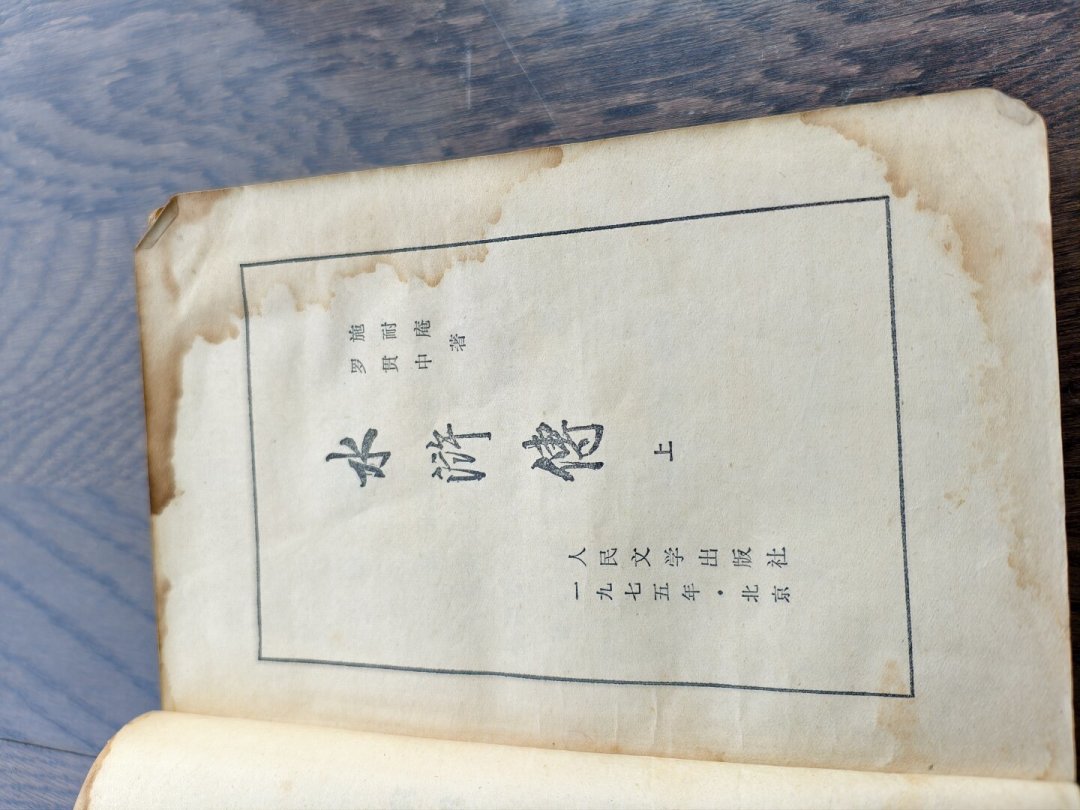 施耐庵
罗贯中
著
水滸傳
上
人民文学出版社
一九七五年·北京